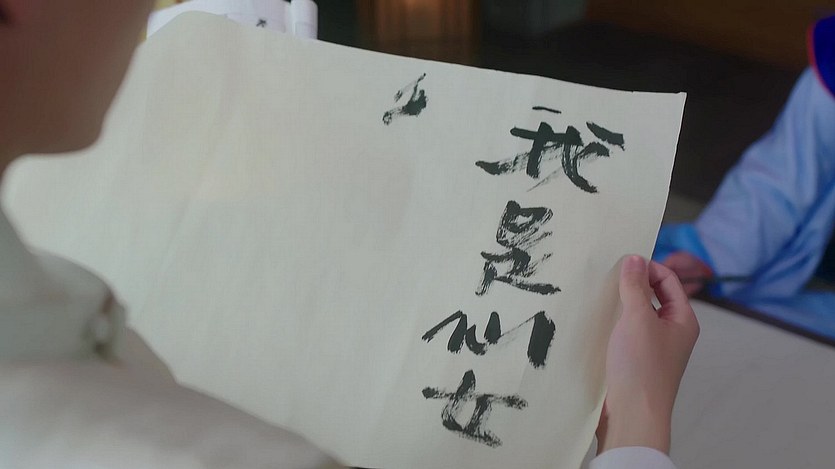 我是仙女